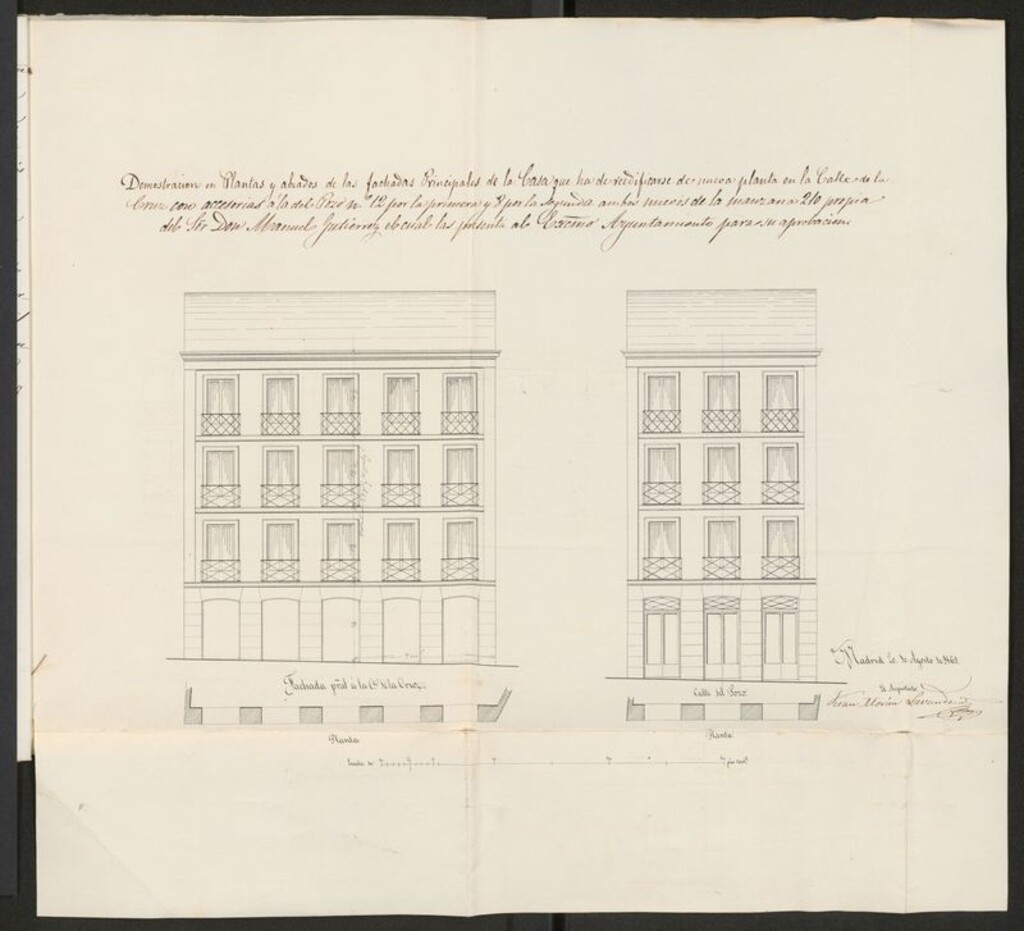 Demostracion en Plantas y alzados de las fachadas Principales de la Casa que ha de reedificarse de nueva planta en la Calle de la
Cruz con accesorias a la del Pozo nº 12 por la primera y 8 por la segunda ambos nuevos de la manzana 210 propia
del Sr Don Manuel Gutierrez el cual las presenta al Excmo Ayuntamiento para su aprobacion
Fachada pral á la Ce de la Cruz
Calle del Pozo
Madrid de Agosto de
El Arquitecto
Juan
Planta
Planta
Escala de